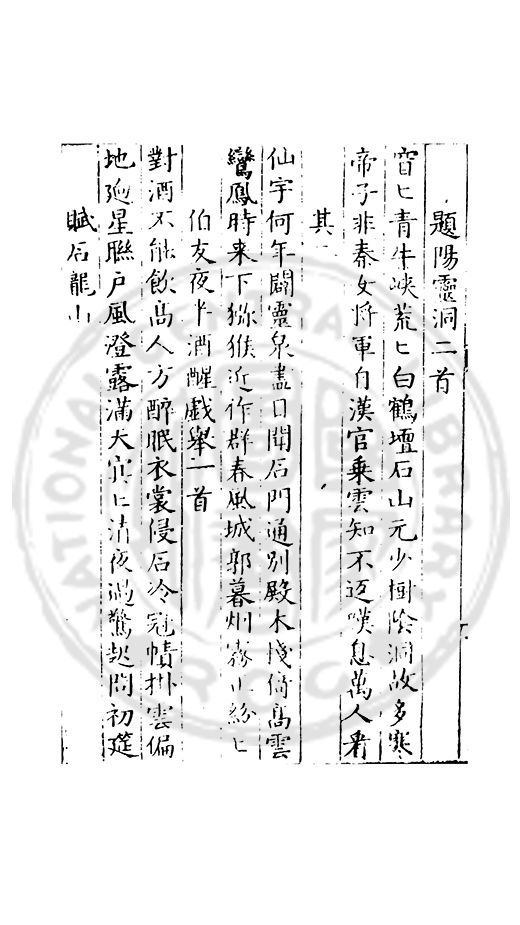 題陽靈洞二首
窅匕青牛峽荒匕白鶴壇石山元少樹陰洞故多寒
帝子非秦女將軍自漢官乗雲知不返嘆息萬人看
其二
仙宇何年闢靈泉盡日聞石門通別殿木棧倚高雲
鸞鳳時来下猕猴近作群春風城郭暮烟霧正紛匕
伯友夜半酒醒戲舉一首
對酒不能飲高人方醉眠衣裳侵石冷冠幘掛雲偏
地迥星聯戶風澄露滿天匕清夜過驚起問初筵
賦石龍山
NATIONAL CENTRAL LIBRARY